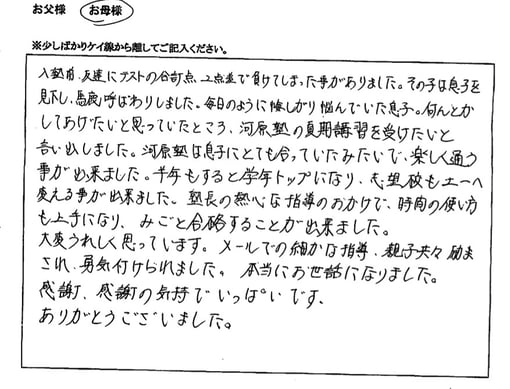 お父様 お母様
※少しばかりケイ線から離してご記入ください。
入塾前、友達にテストの合計点、2点差で負けてしまった事がありました。その子は息子を
見下し、馬鹿呼ばわりしました。毎日のように悔しがり悩んでいた息子。何んとか
してあげたいと思っていたところ、河原塾の夏期講習を受けたいと
言い出しました。河原塾は息子にとても合っていたみたいで、楽しく通う
事が出来ました。半年もすると学年トップになり、志望校も工一へ
変える事が出来ました。塾長の熱心な指導のおかげで、時間の使い方
も上手になり、みごと合格することが出来ました。
大変うれしく思っています。メールでの細かな指導、親子共々励ま
され、勇気付けられました。本当にお世話になりました。
感謝、感謝の気持でいっぱいです、
ありがとうございました。